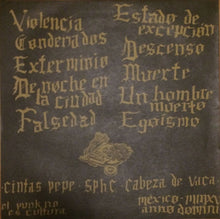 Violencia
Condenados
Exterminio
De noche en
la ciudad
Falsedad
Estado de
excepción
Descenso
Muerte
Un hombre
muerto
Egoísmo
·cintas pepe·sphc·cabeza de vaca·
el punk no
es cultura
méxico·mmxi
anno domini